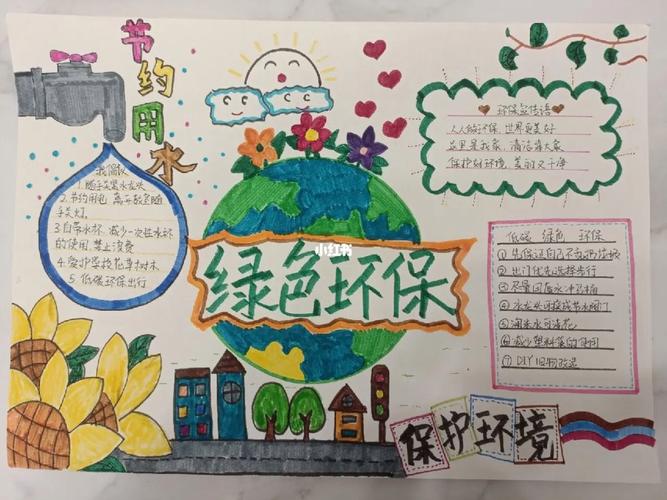 节约用水
我倡议
1.随手关紧水龙头
2.节约用电,离开教室随
手关灯.
3.自带水杯,减少一次性水杯
的使用,禁止浪费
4.爱护学校花草树木
5.低碳环保出行
环保宣传语
人人做环保,世界更美好
这里是我家,清洁靠大家
保护好环境,美丽又干净
小红书
绿色环保
低碳 绿色 环保
①先保证自己不乱扔垃圾
②出门优先选择步行
③尽量回废水冲马桶
④水龙头可换成节水阀门
⑤淘米水可浇花
⑥减少塑料袋的使用
⑦DIY旧物改造
保护环境